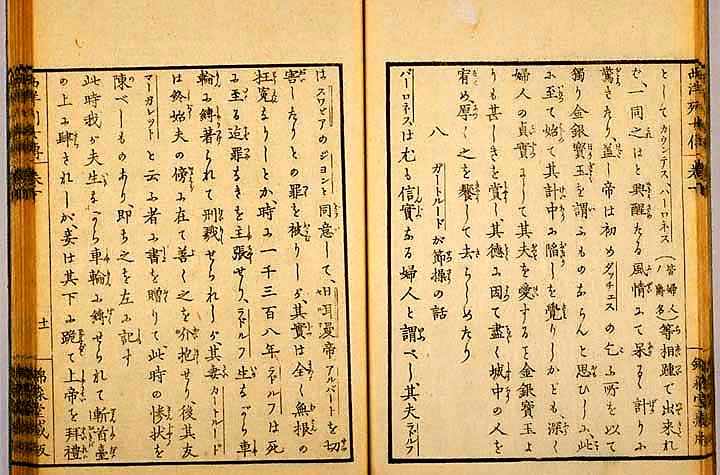 西洋列女傳 巻十
としてカウンテス、バーロネス(皆婦人ノ爵名)等相踵で出来れ
ば、一同之はと興醒たる風情にて呆るゝ計りに
驚きたり、蓋し帝は初めダッチェスの乞ふ所を以て
獨り金銀寶玉を謂ふものならんと思ひしに、此
に至て始て其計中に陥しを覺りしかども、深く
婦人の貞實にして其夫を愛するを金銀寶玉よ
りも甚しきを賞し其徳に因て盡く城中の人を
宥め、厚く之を饗して去らしめたり
八 ガートルードが節操の話
バーロネスは尤も信實なる婦人と謂べし、其夫ラドルフ
はスワビアのジョンと同意して、日耳曼帝アルバートを切
害したりとの罪を被りしが、其實は全く無根の
枉冤なりしとか、時に一千三百八年ラドルフは死
に至る迄罪なきを主張せり、ラドルフ生ながら車
輪に縛著られて刑戮せられしが、其妻ガートルード
は終始夫の傍に在て善く之を介抱せり、後其友
マーガレットと云ふ者に書を贈りて此時の惨状を
陳べしものあり、即ち之を左に記す
此時我が夫生ながら車輪に縛せられて斬首臺
の上に肆されしが、妾は其下に跪て上帝を拜禮
十一